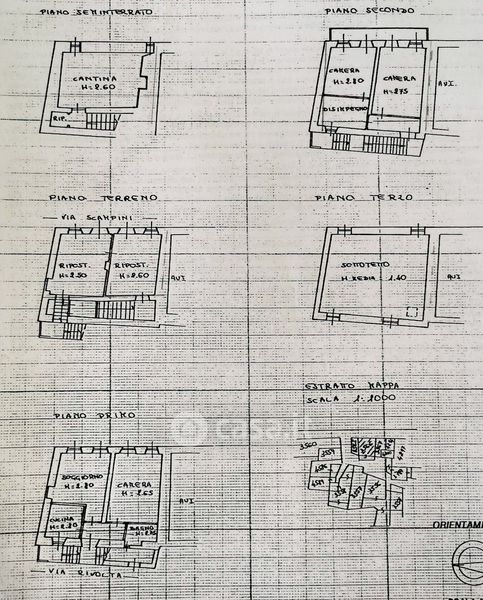 PIANO SEMINTERRATO
CANTINA
H=2.60
RIP.
PIANO SECONDO
CAMERA
H=2.80
CAMERA
H=2.75
DISIMPEGNO
AUI.
PIANO TERRENO
VIA SCARPINI
RIPOST.
H=2.50
RIPOST.
H=2.60
AUI
PIANO TERZO
SOTTOTETTO
H MEDIA = 1.40
AUI
PIANO PRIMO
SOGGIORNO
H=2.80
CAMERA
H=2.65
CUCINA
H=2.80
BAGNO
AUI
VIA RIVOLTA
ESTRATTO MAPPA
SCALA 1:1000
casa.it
ORIENTAM